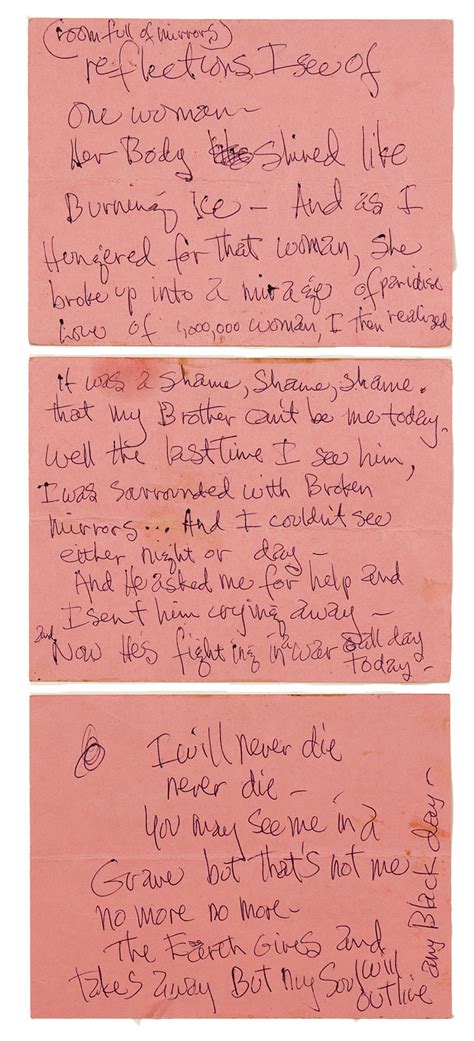 (room full of mirrors)
reflections I see of
one woman-
Her Body shined like
Burning Ice - And as I
Hungered for that woman, she
broke up into a mirage of paridise
Love of 1,000,000 woman, I then realized
it was a shame, shame, shame.
that my Brother can't be me today.
well the last time I see him,
I was sarrounded with Broken
mirrors... And I couldn't see
either night or day -
And He asked me for help and
I sent him crying away -
and Now He's fighting in a war all day
today -
I will never die
never die -
you may see me in a
Grave but that's not me
no more no more -
The Earth Gives and
takes away But my Soul will
outlive
any Black day -